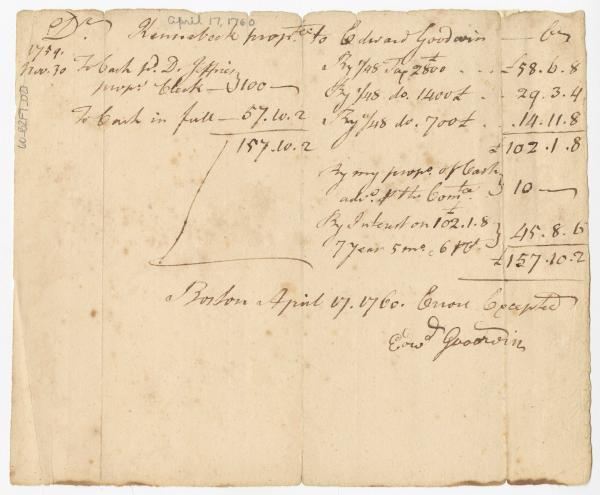 April 17, 1760
Dr. Kennebeck prop.tce to Edward Goodwin — Cr
1759.
Nov. 30 To Cash pd. D. Jeffries
prop.s Clerk — } 100 —
To Cash in full — 57.10.2
157.10.2
By 1/48 Tax 2800 . . . £58.6.8
By 1/48 do. 1400£ . . 29.3.4
By 1/48 do. 700£ . . 14.11.8
£102.1.8
By my prop.o of Cash
adv.d p the Com.tee } 10 —
By Interest on 102.1.8
7 year 5 mo. c 6 P Ct. } 45.8.6
£157.10.2
Boston April 17. 1760. Errors Excepted
Edwd Goodwin